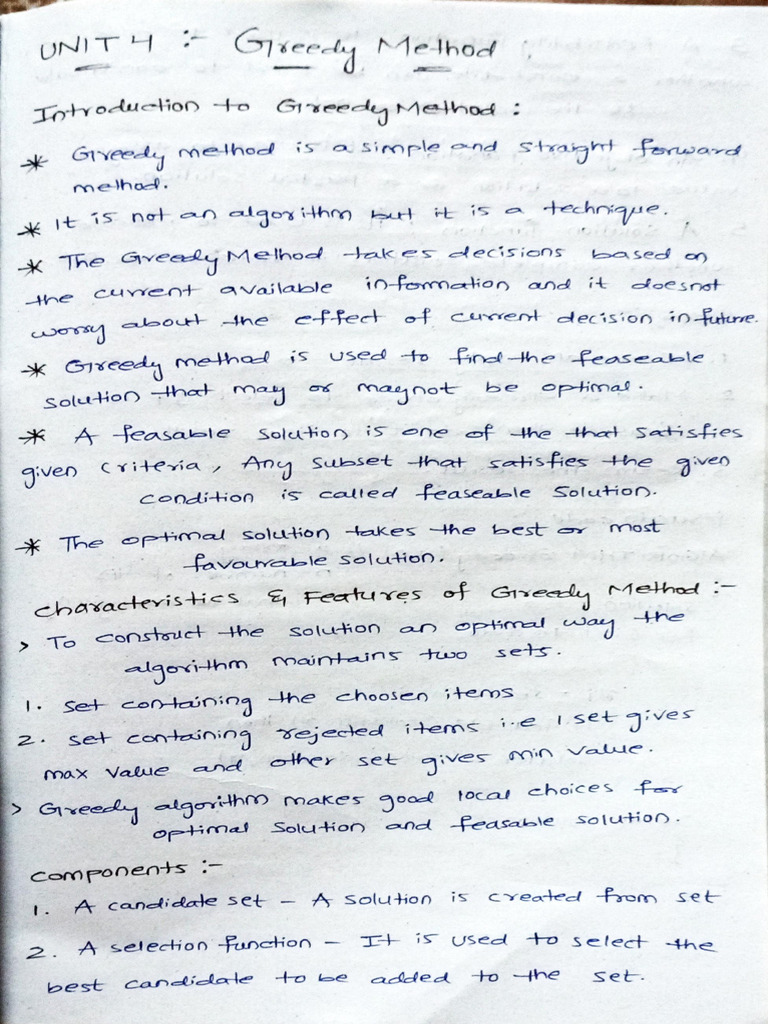 UNIT 4 :- Greedy Method :
Introduction to Greedy Method :
* Greedy method is a simple and straight forward
method.
* It is not an algorithm but it is a technique.
* The Greedy Method takes decisions based on
the current available information and it doesnot
worry about the effect of current decision in future.
* Greedy method is used to find the feaseable
solution that may or maynot be optimal.
* A feasable solution is one of the that satisfies
given criteria, Any subset that satisfies the given
condition is called feaseable solution.
* The optimal solution takes the best or most
favourable solution.
Characteristics & Features of Greedy Method :-
> To construct the solution an optimal way the
algorithm maintains two sets.
1. Set containing the choosen items
2. Set containing rejected items i.e 1 set gives
max value and other set gives min value.
> Greedy algorithm makes good local choices for
optimal solution and feasable solution.
Components :-
1. A candidate set - A solution is created from set
2. A selection function - It is used to select the
best candidate to be added to the set.